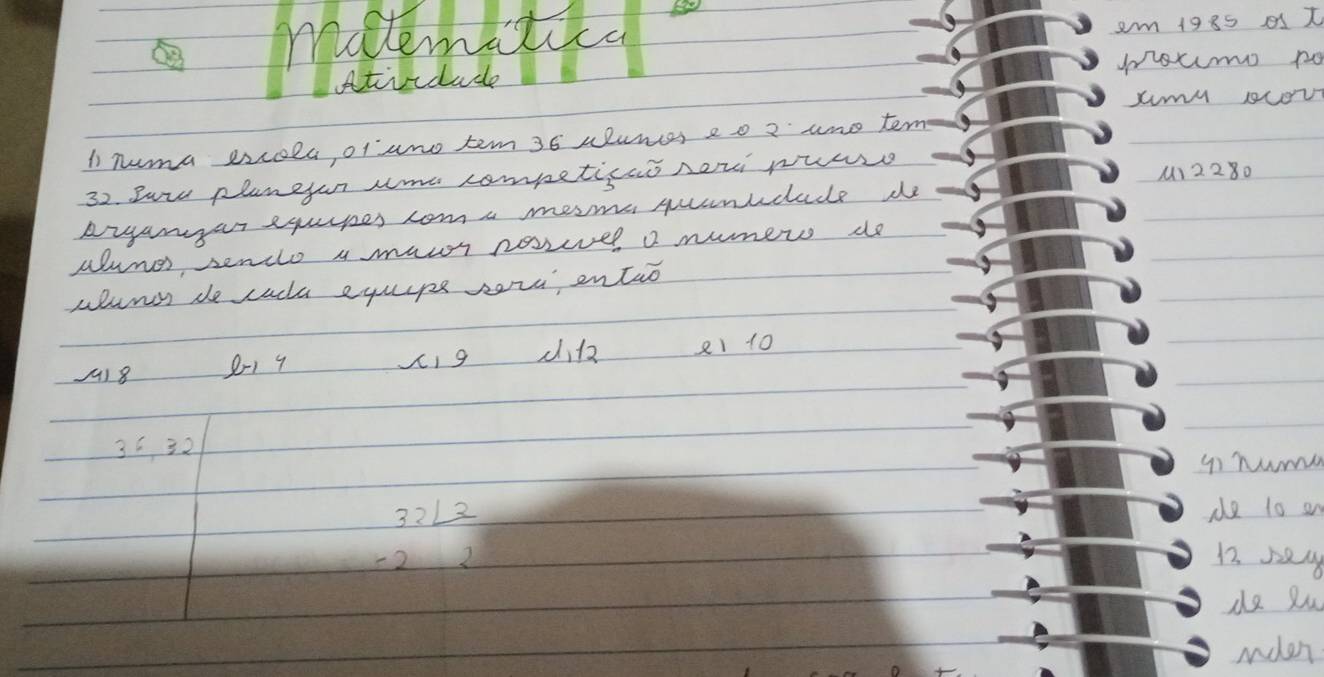 Matemática
Atividade
1) numa escola, o 1º ano tem 36 alunos e o 2º ano tem
32. Para planejar uma competição será preciso
organizar equipes com a mesma quantidade de
alunos, sendo a maior possível o numero de
alunos de cada equipe será, então
a) 8 b) 4 c) 9 d) 12 e) 10
36, 32
32 2
-2 2
em 1985 os
proximo
a) 2280
4) numa
de 10
12
de